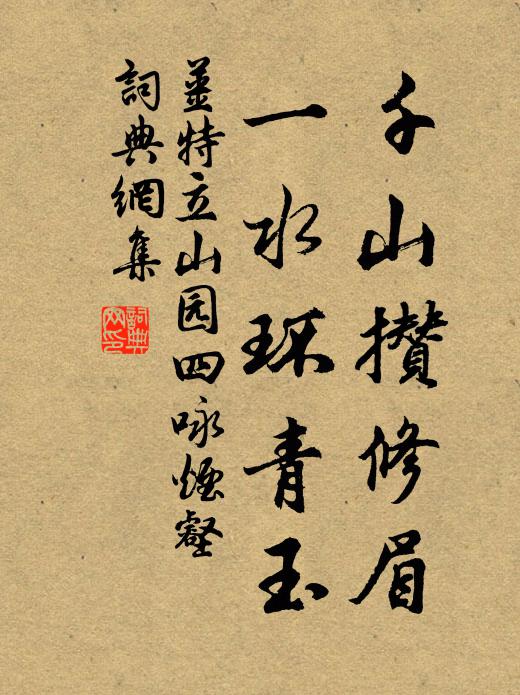 千山攅修眉
一水环青玉
姜特立山园四咏烟壑
詞典網集
詞典网印